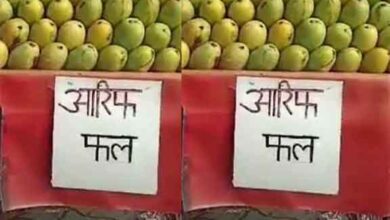 आरिफ
फल
आरिफ
फल